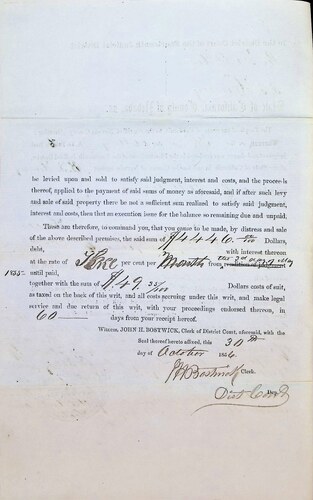 be levied upon and sold to satisfy said judgment, interest and costs, and the proceeds
thereof, applied to the payment of said sums of money as aforesaid, and if after such levy
and sale of said property there be not a sufficient sum realized to satisfy said judgment,
interest and costs, then that an execution issue for the balance so remaining due and unpaid.
These are therefore, to command you, that you cause to be made, by distress and sale
of the above described premises, the said sum of $1446 Dollars,
debt, with interest thereon
at the rate of Three per cent per Month from
until paid,
together with the sum of $49 Dollars costs of suit,
as taxed on the back of this writ, and all costs accruing under this writ, and make legal
service and due return of this writ, with your proceedings endorsed thereon, in
60 days from your receipt hereof.
Witness, JOHN H. BOSTWICK, Clerk of District Court, aforesaid, with the
Seal thereof hereto affixed, this 30th
day of October 1856.
JH Bostwick Clerk.
Dist Court Dep.